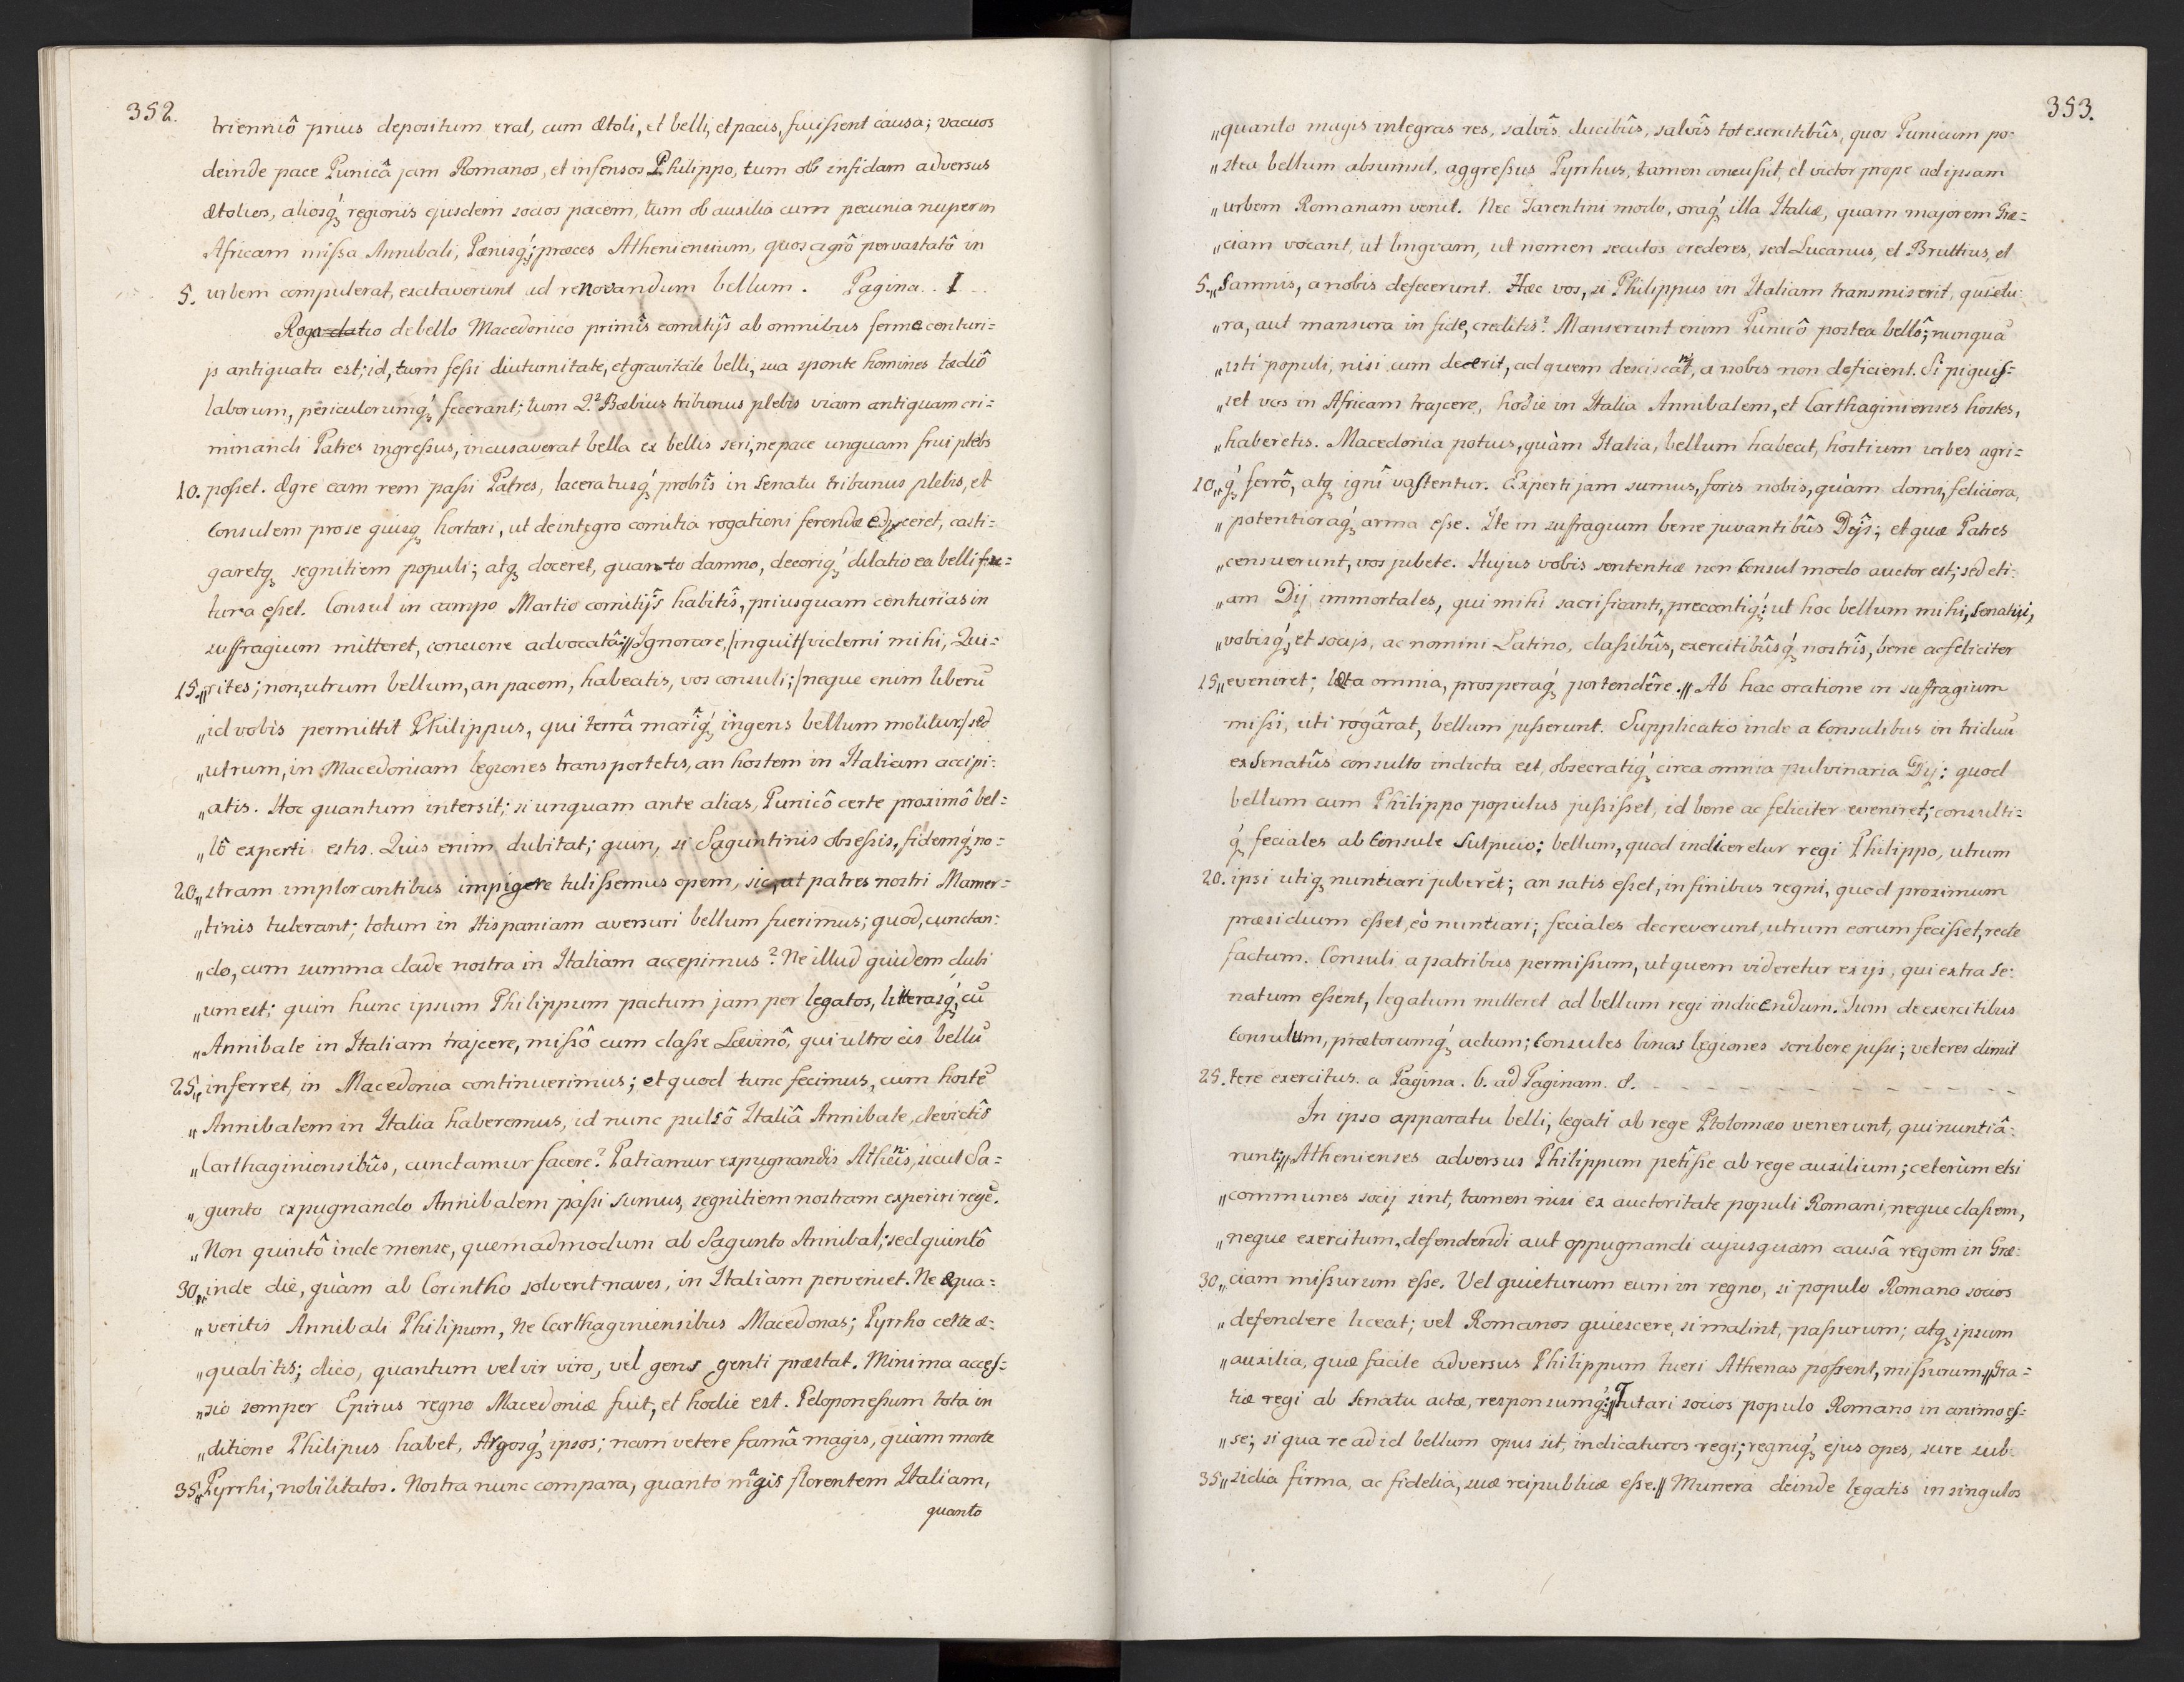 352.
trienniô prius depositum erat, cum Ætoli, et belli, et pacis, fuissent causa; vacuos
deinde pace Punicâ jam Romanos, et infensos Philippo, tum ob infidam adversus
Ætolios, aliosq́ regionis ejusdem socios pacem, tum ob auxilia cum pecunia nuper in
Africam missa Annibali, Pœnisq́; præces Atheniensium, quos agrô pervastatô in
5. urbem compulerat, excitaverunt ad renovandum bellum. Pagina. . I . .
Rogatio de bello Macedonico primîs comitijs ab omnibus ferme centuri=
js antiquata est; id, tum fessi diuturnitate, et gravitate belli, sua sponte homines tædiô
laborum, periculorumq́ fecerant; tum Q. Bæbius tribunus plebis viam antiquam cri=
minandi Patres ingressus, incusaverat bella ex bellis seri, ne pace unquam frui plebs
10. posset. Ægre eam rem passi Patres, laceratusq́ probrîs in Senatu tribunus plebis, et
Consulem pro se quisq hortari, ut de integro comitia rogationi ferendæ ediceret, casti=
garetq segnitiem populi; atq doceret, quanto damno, decoriq́ dilatio ea belli fu=
tura esset. Consul in campo Martio comitijs habitîs, priusquam centurias in
suffragium mitteret, concione advocatâ;// Ignorare, /inquit/ videmi mihi, Qui=
15. „rites; non, utrum bellum, an pacem, habeatis, vos consuli; /neque enim liberū
„id vobis permittit Philippus, qui terrâ marîq́ ingens bellum molitur;/ sed
„utrum, in Macedoniam legiones transportetis, an hostem in Italiam accipi=
„atis. Hoc quantum intersit; si unquam ante alias, Punicô certe proximô bel=
„lô experti estis. Quis enim dubitat; quin, si Saguntinis obsessis, fidemq́ no=
20. „stram implorantibus impigere tulissemus opem, sic, ut patres nostri Mamer=
„tinis tulerant; totum in Hispaniam aversuri bellum fuerimus; quod, cunctan=
„do, cum summa clade nostra in Italiam accepimus? Ne illud quidem dubi
„um est; quin hunc ipsum Philippum pactum jam per legatos, litterasq́, cū
„Annibale in Italiam trajcere, missô cum classe Lævinô, qui ultro eis bellū
25. „inferret, in Macedonia continuerimus; et quod tunc fecimus, cum hostē
„Annibalem in Italia haberemus, id nunc pulsô Italiâ Annibale, devictîs
„Carthaginiensibûs, cunctamur facere? Patiamur expugnandis Athenîs, sicut Sa=
„gunto expugnando Annibalem passi sumus, segnitiem nostram experiri regē.
„Non quintô inde mense, quemadmodum ab Sagunto Annibal; sed quintô
30. „inde diê, quàm ab Corintho solverit naves, in Italiam perveniet. Ne æqua=
„veritis Annibali Philipum, ne Carthaginiensibus Macedonas; Pyrrho certe æ=
„quabitis; dico, quantum vel vir viro, vel gens genti præstat. Minima acces=
„sio semper Epirus regno Macedoniæ fuit, et hodie est. Peloponessum tota in
„ditione Philipus habet, Argosq́ ipsos; nam vetere famâ magis, quàm morte
35. „Pyrrhi, nobilitatos. Nostra nunc compara, quanto magis florentem Italiam,
quanto
353.
„quanto magis integras res, salvîs ducibûs, salvîs tot exercitibûs, quos Punicum po=
„stea bellum absumsit, aggressus Pyrrhus, tamen concussit, et victor prope ad ipsam
„urbem Romanam venit. Nec Tarentini modo, oraq́ illa Italiæ, quam majorem Græ=
„ciam vocant, ut lingvam, ut nomen secutos crederes, sed Lucanus, et Bruttius, et
5. „Samnis, a nobis defecerunt. Hæc vos, si Philippus in Italiam transmiserit, quietu
„ra, aut mansura in fide, creditis? Manserunt enim Punicô postea bellô; nunquā
„isti populi, nisi cum deerit, ad quem desciscant, a nobis non deficient. Si piguis=
„set vos in Africam trajcere, hodie in Italia Annibalem, et Carthaginienses hostes,
„haberetis. Macedonia potius, quàm Italia, bellum habeat, hostium urbes agri=
10. „q́ ferrô, atq ignî vastentur. Experti jam sumus, foris nobis, quàm domi, feliciora,
„potentioraq́ arma esse. Ite in suffragium bene juvantibûs Dijs; et quæ Patres
„censuerunt, vos jubete. Hujus vobis sententiæ non Consul modo auctor est; sed eti=
„am Dij immortales, qui mihi sacrificanti, precantiq́; ut hoc bellum mihi, Senatui,
„vobisq́, et socijs, ac nomini Latino, classibûs, exercitibûsq́ nostrîs, bene ac feliciter
15. „eveniret; læta omnia, prosperaq́ portendêre.// Ab hac oratione in suffragium
missi, uti rogârat, bellum jusserunt. Supplicatio inde a Consulibus in triduū
ex Senatûs consulto indicta est, obsecratiq́ circa omnia pulvinaria Dij: quod
bellum cum Philippo populus jussisset, id bene ac feliciter eveniret; consulti=
q́ feciales ab Consule Sulpicio: bellum, quod indiceretur regi Philippo, utrum
20. ipsi utiq nuntiari juberet; an satis esset, in finibus regni, quod proximum
præsidium esset, eò nuntiari; feciales decreverunt, utrum eorum fecisset, recte
factum. Consuli a patribus permissum, ut quem videretur ex ijs, qui extra Se=
natum essent, legatum mitteret ad bellum regi indicendum. Tum de exercitibus
Consulum, prætorumq́ actum; Consules binas legiones scribere jussi; veteres dimit
25. tere exercitus. a Pagina. 6. ad Paginam. 8. - - - - - - - - - -
In ipso apparatu belli, legati ab rege Ptolomæo venerunt, qui nuntiâ=
runt;// Athenienses adversus Philippum petîsse ab rege auxilium; ceterùm etsi
„communes socij sint, tamen nisi ex auctoritate populi Romani, neque classem,
„neque exercitum, defendendi aut oppugnandi cujusquam causâ regem in Græ=
30. „ciam missurum esse. Vel quieturum eum in regno, si populo Romano socios
„defendere liceat; vel Romanos quiescere, si malint, passurum; atq ipsum
„auxilia, quæ facile adversus Philippum tueri Athenas possent, missurum.// Gra=
tiæ regi ab Senatu actæ, responsumq́;// Tutari socios populo Romano in animo es=
„se; si qua re ad id bellum opus sit, indicaturos regi; regniq́ ejus opes, scire sub=
35. „sidia firma, ac fidelia, suæ reipublicæ esse.// Munera deinde legatis in singulos